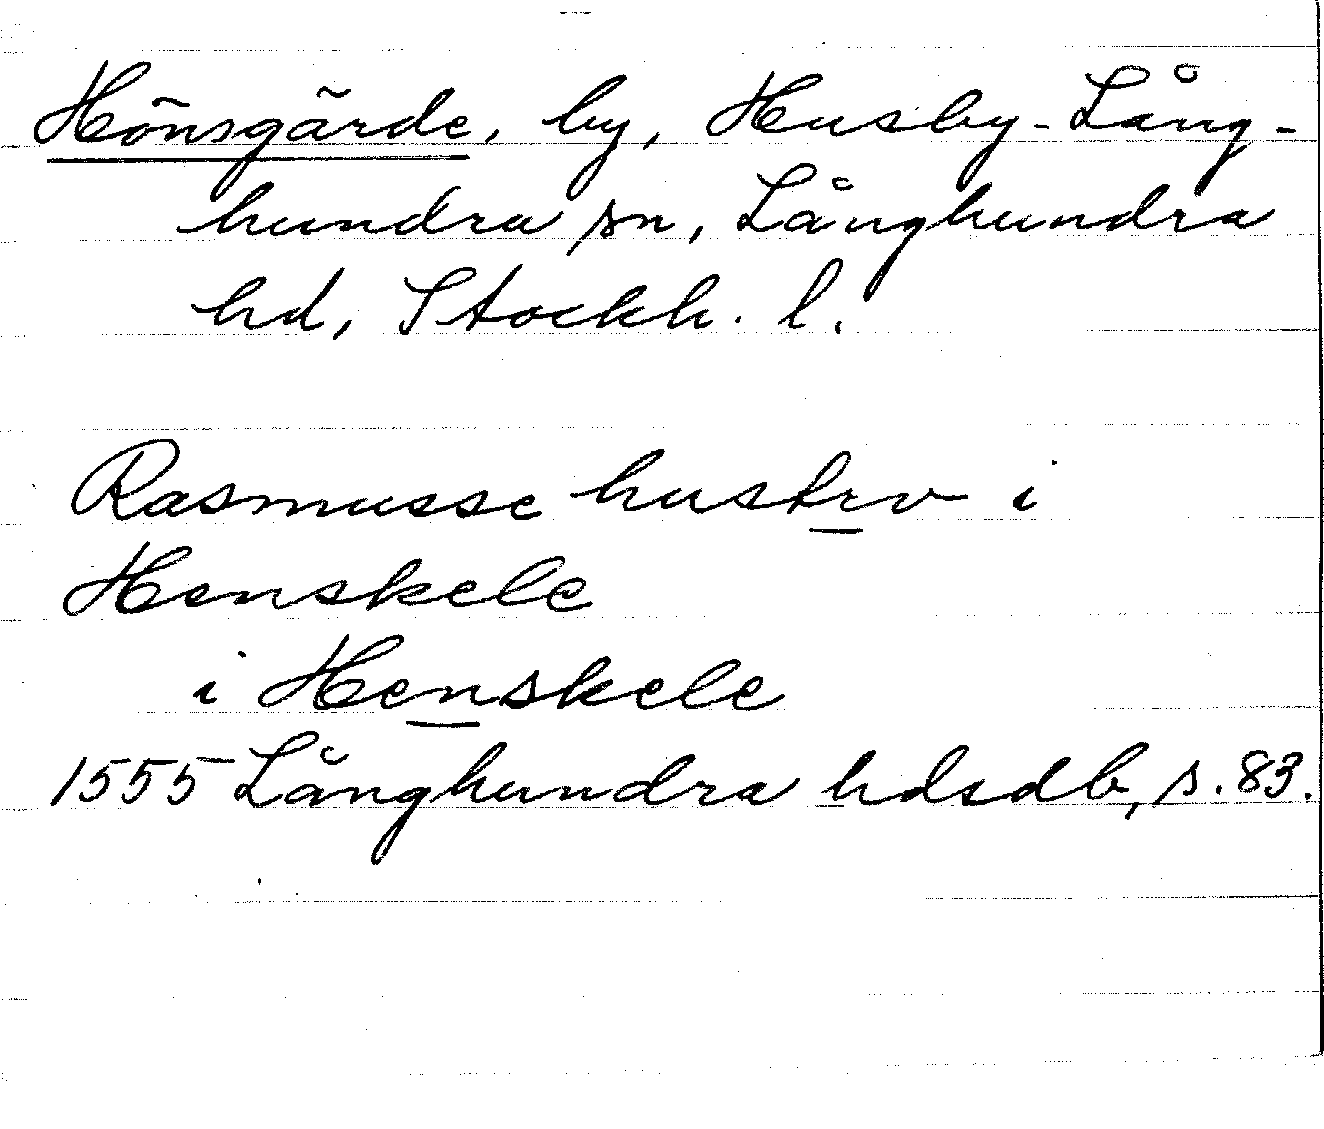 Hönsgärde, by, Husby-Lång-
hundra sn, Långhundra
hd, Stockh. l.
Rasmusse hustrv i
Henskele
i Henskele
1555 Långhundra hdsdb, s. 83.